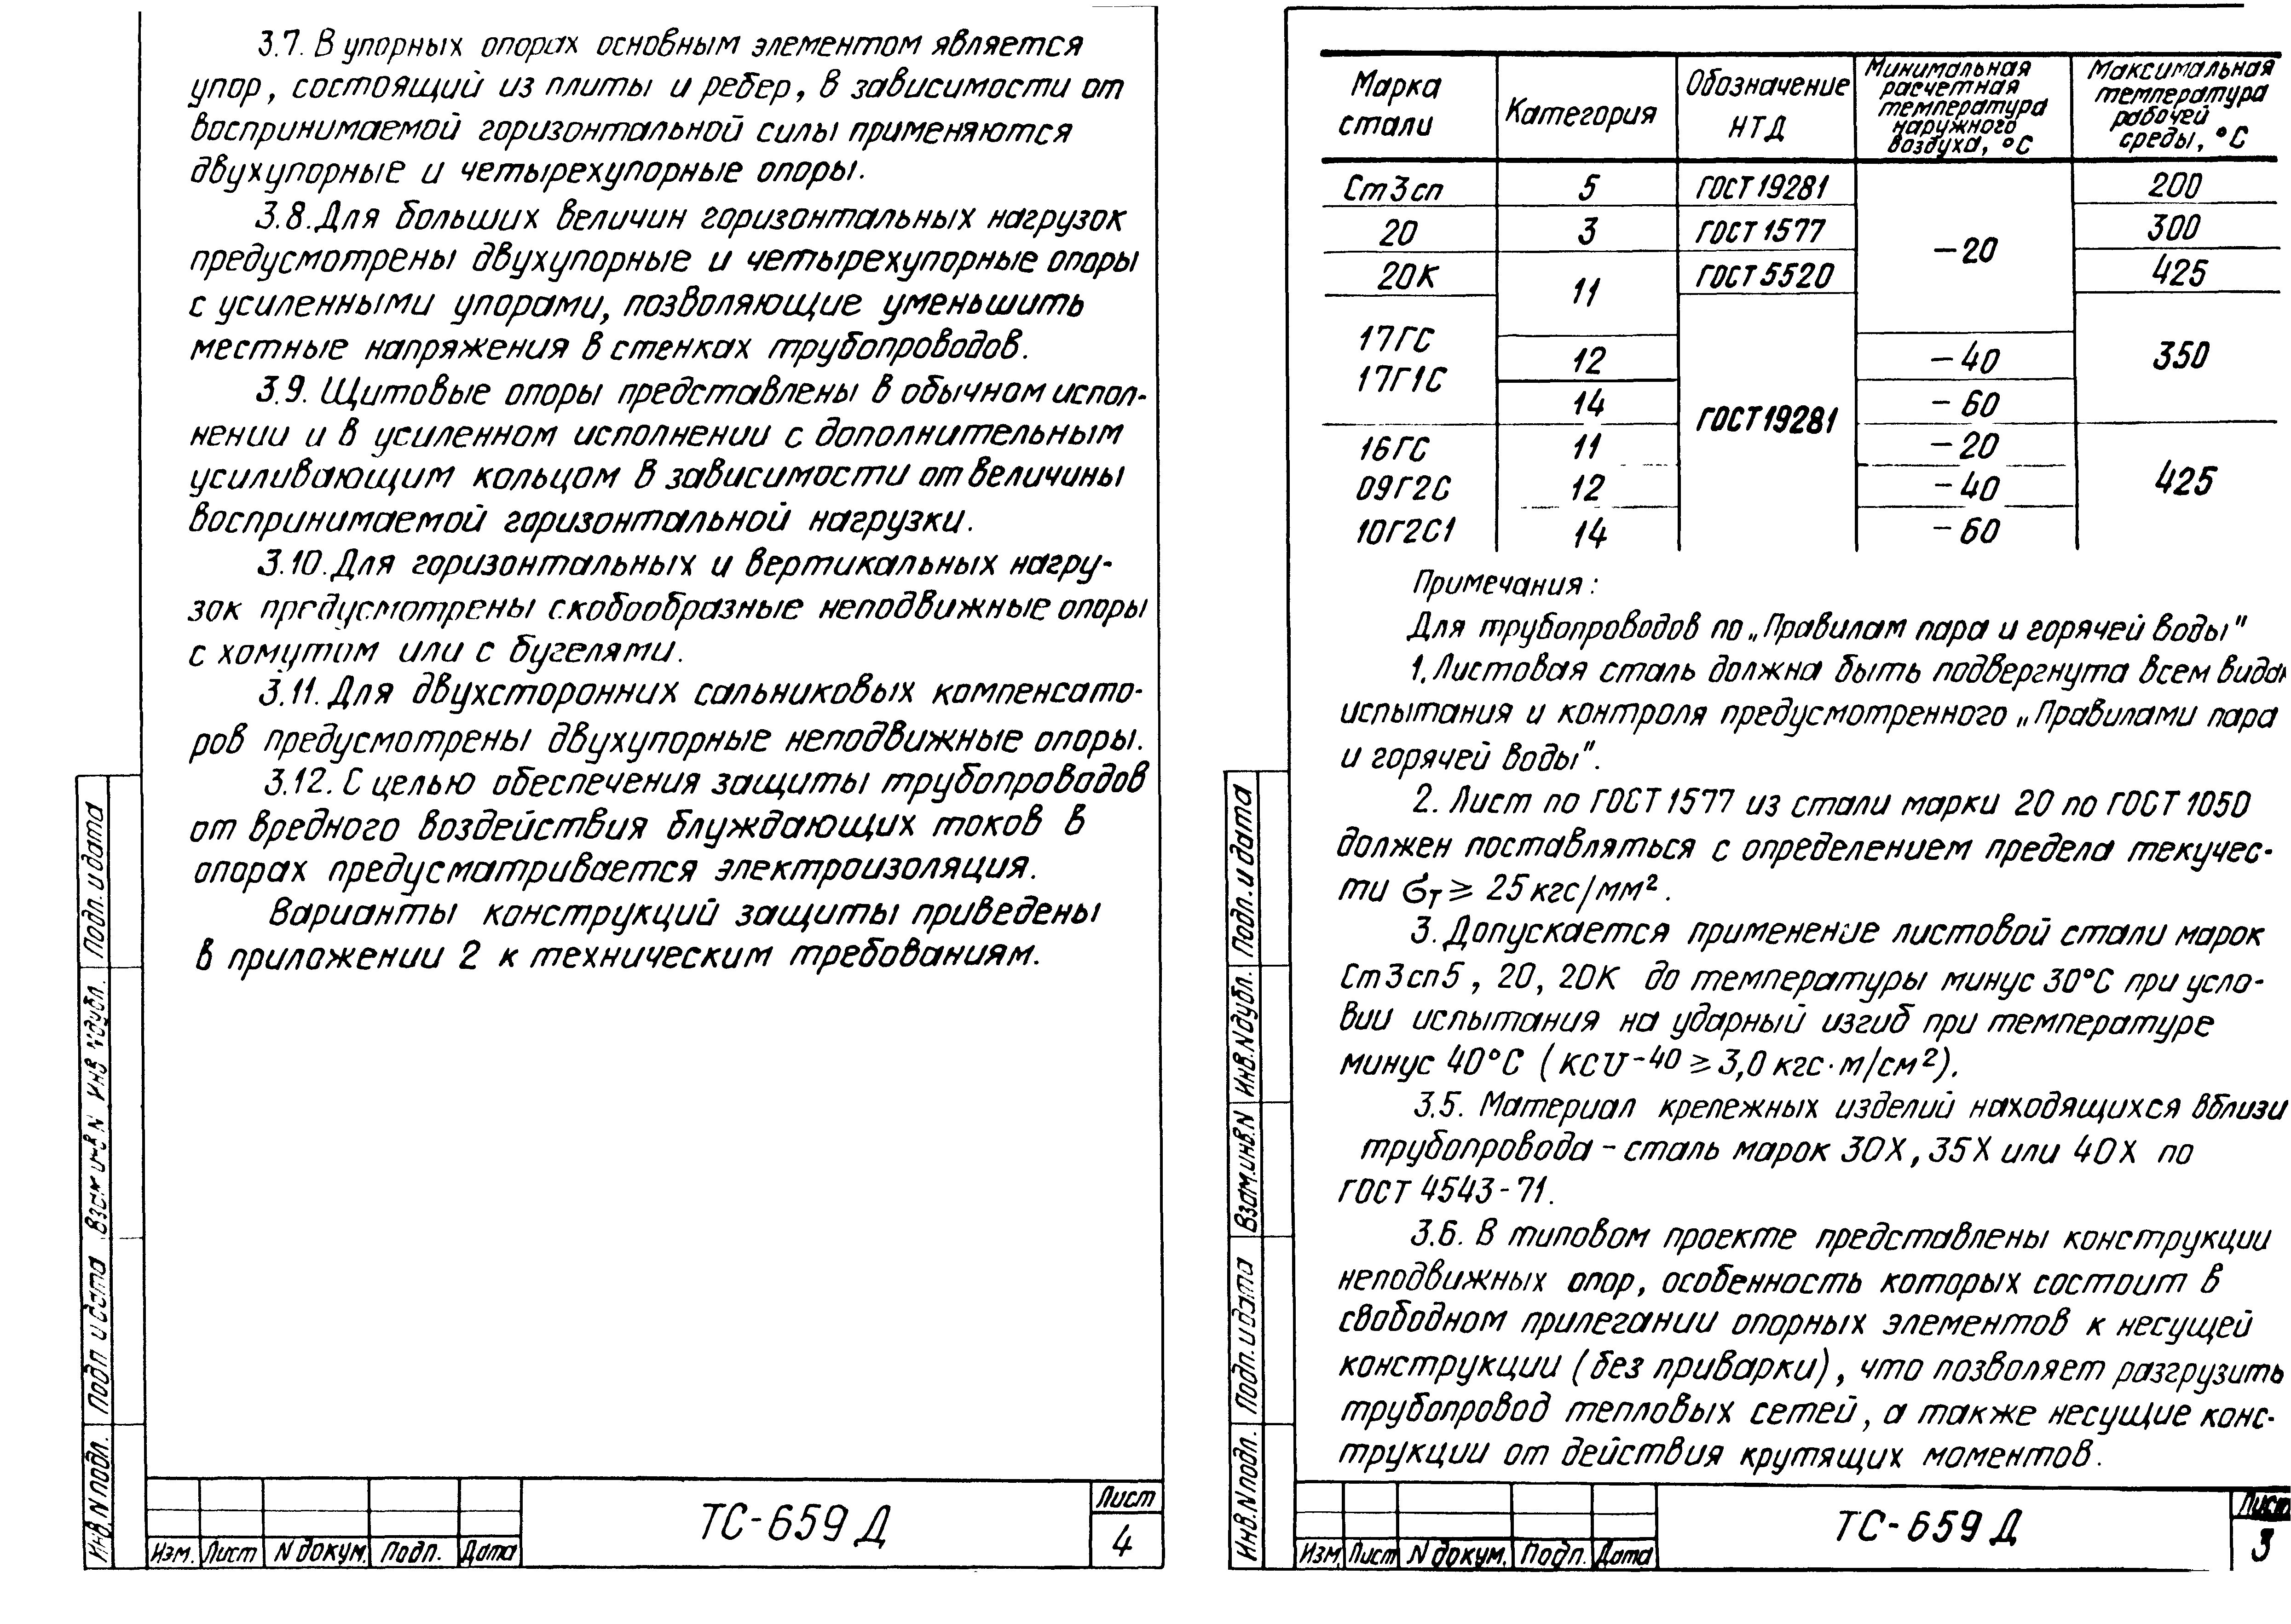 3.7. В упорных опорах основным элементом является
упор, состоящий из плиты и ребер, в зависимости от
воспринимаемой горизонтальной силы применяются
двухупорные и четырехупорные опоры.
3.8. Для больших величин горизонтальных нагрузок
предусмотрены двухупорные и четырехупорные опоры
с усиленными упорами, позволяющие уменьшить
местные напряжения в стенках трубопроводов.
3.9. Щитовые опоры представлены в обычном испол-
нении и в усиленном исполнении с дополнительным
усиливающим кольцом в зависимости от величины
воспринимаемой горизонтальной нагрузки.
3.10. Для горизонтальных и вертикальных нагру-
зок предусмотрены скобообразные неподвижные опоры
с хомутом или с бугелями.
3.11. Для двухсторонних сальниковых компенсато-
ров предусмотрены двухупорные неподвижные опоры.
3.12. С целью обеспечения защиты трубопроводов
от вредного воздействия блуждающих токов в
опорах предусматривается электроизоляция.
Варианты конструкций защиты приведены
в приложении 2 к техническим требованиям.
Подп. и дата
Инв. N дубл.
Взам. инв. N
Подп. и дата
Инв. N подл.
Изм. Лист N докум. Подп. Дата
ТС-659 Д
Лист
4
Марка стали
Категория
Обозначение НТД
Минимальная расчетная температура наружного воздуха, °С
Максимальная температура рабочей среды, °С
Ст3сп 5 ГОСТ 19281 200
20 3 ГОСТ 1577 -20 300
20К 11 ГОСТ 5520 425
17ГС
12 -40 350
17Г1С
14 -60
ГОСТ 19281
16ГС 11 -20
09Г2С 12 -40 425
10Г2С1 14 -60
Примечания:
Для трубопроводов по „Правилам пара и горячей воды"
1. Листовая сталь должна быть подвергнута всем видам
испытания и контроля предусмотренного „Правилами пара
и горячей воды".
2. Лист по ГОСТ 1577 из стали марки 20 по ГОСТ 1050
должен поставляться с определением предела текучес-
ти σт ⩾ 25 кгс/мм².
3. Допускается применение листовой стали марок
Ст3сп5, 20, 20К до температуры минус 30°С при усло-
вии испытания на ударный изгиб при температуре
минус 40°С (KCU⁻⁴⁰ ⩾ 3,0 кгс·м/см²).
3.5. Материал крепежных изделий находящихся вблизи
трубопровода - сталь марок 30Х, 35Х или 40Х по
ГОСТ 4543-71.
3.6. В типовом проекте представлены конструкции
неподвижных опор, особенность которых состоит в
свободном прилегании опорных элементов к несущей
конструкции (без приварки), что позволяет разгрузить
трубопровод тепловых сетей, а также несущие конс-
трукции от действия крутящих моментов.
Подп. и дата
Инв. N дубл.
Взам. инв. N
Подп. и дата
Инв. N подл.
Изм. Лист N докум. Подп. Дата
ТС-659 Д
Лист
3